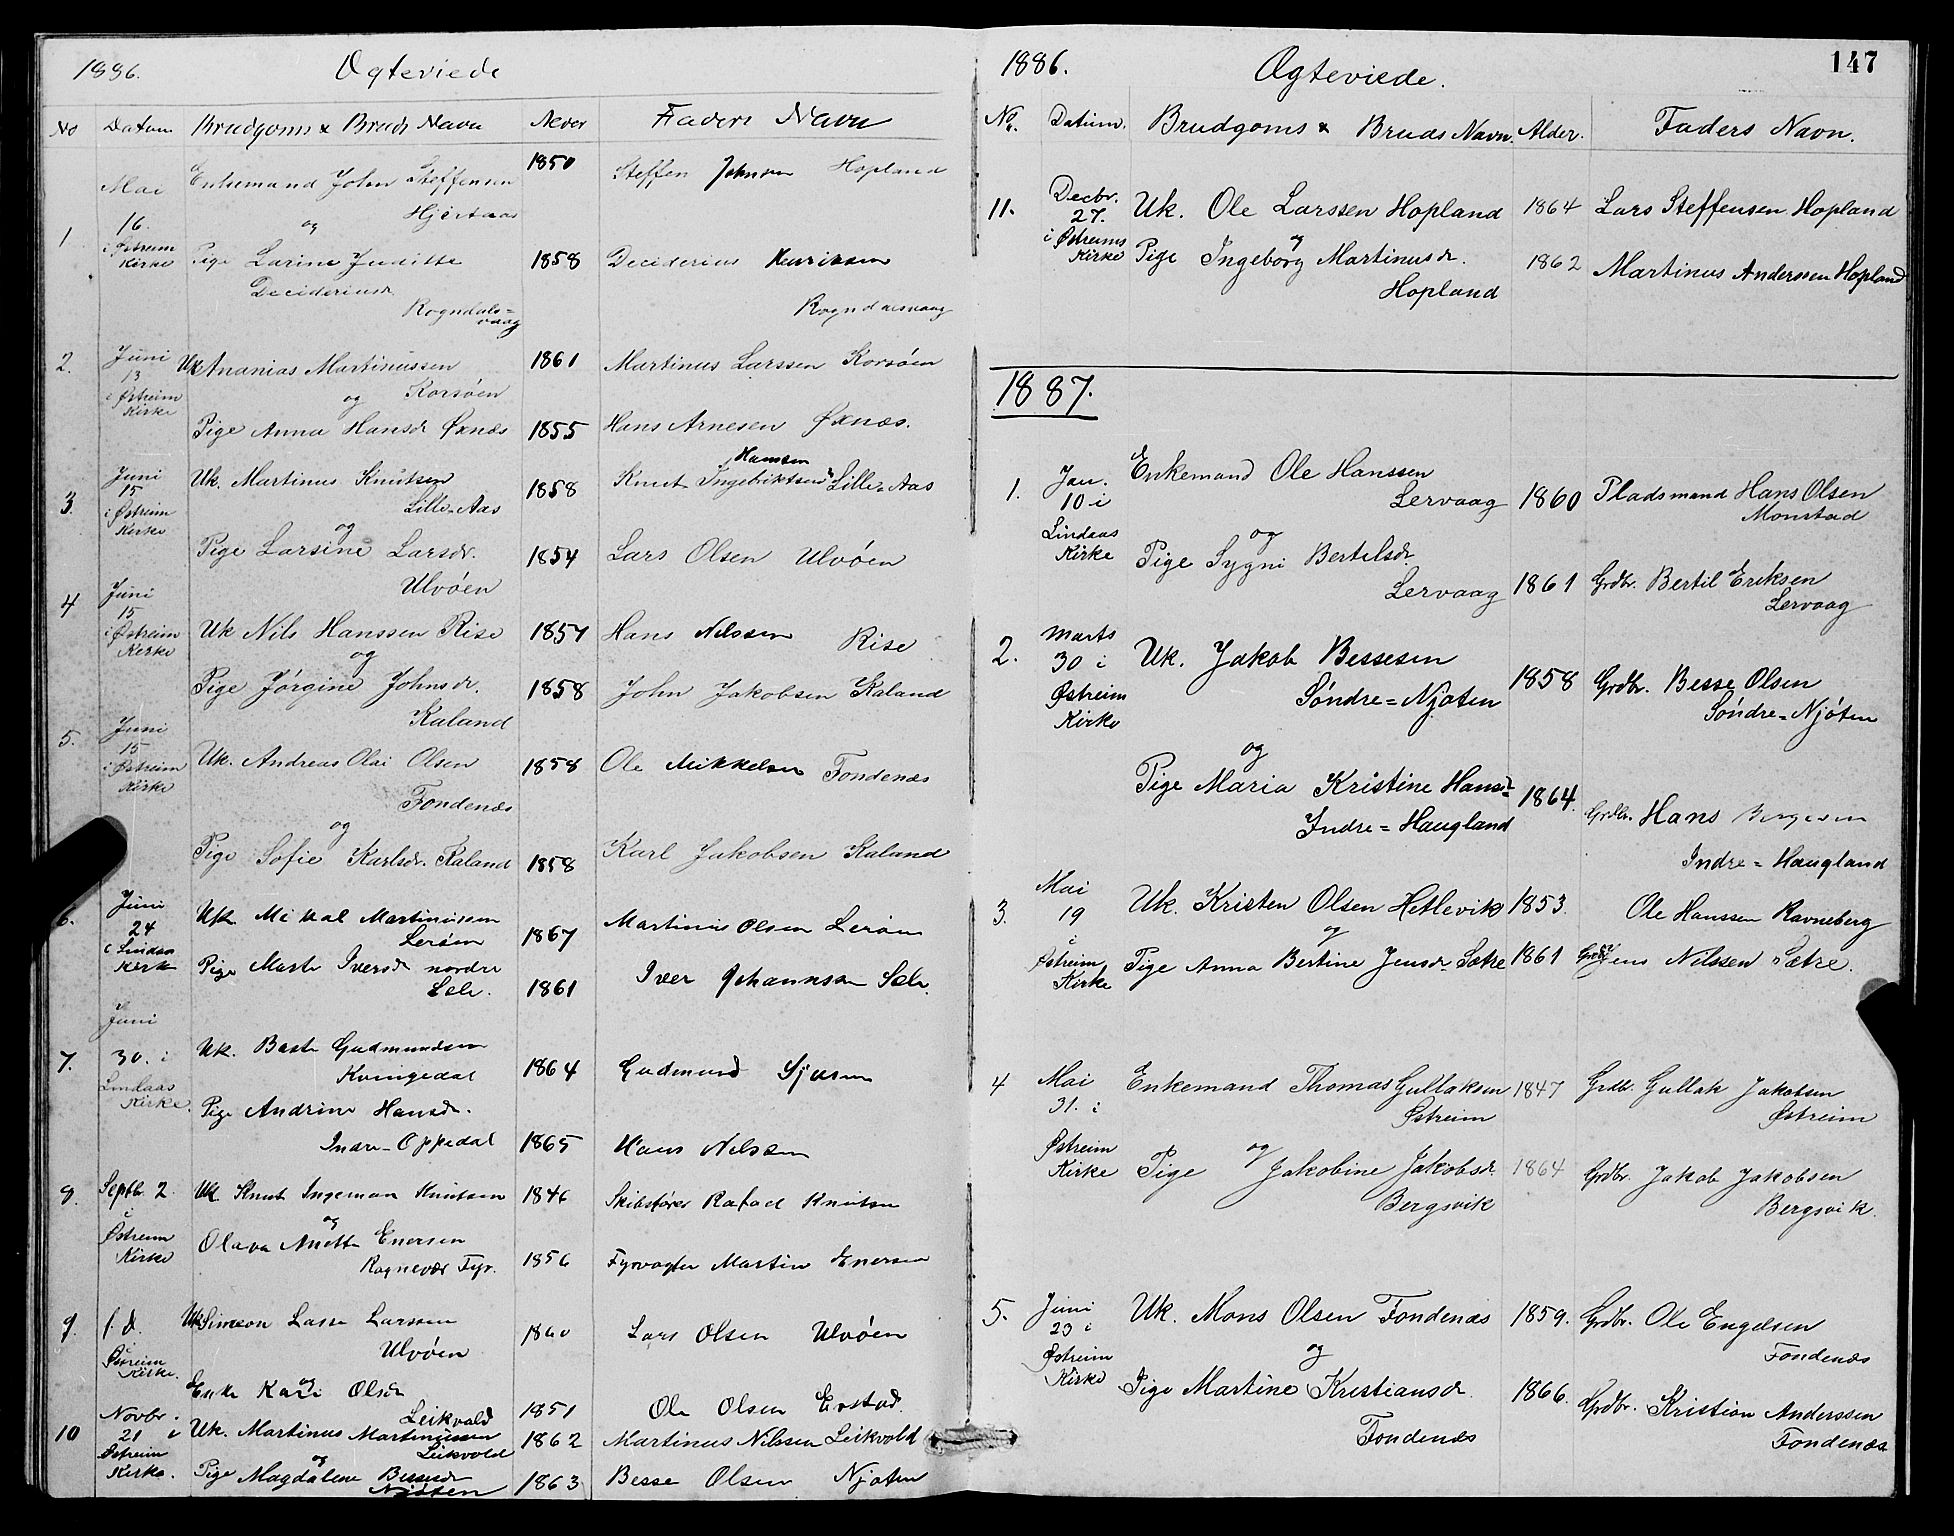 1886.
Ægteviede
No Datum Brudgoms & Bruds Navn Alder Faders Navn
Mai Enkemand John Steffensen 1850 Steffen Johnsen Hopland
16. og Hjertaas
1 i Østreim
Kirke Pige Larine Juditte 1858 Deciderius Henriksen
Decideriusdr.
Rogndals= Rogndalsvaag
vaag
2. Juni Uk Ananias Martinussen 1861 Martinus Larssen Korsøen
13
i Østreim og Korsøen
Kirke
Pige Anna Hansdr Øxnæs 1855 Hans Arnesen Øxnæs.
Hansen
Juni Uk. Martinus Knutsen 1858 Knut Ingebriktsen Lille-Aas
15 Lille-Aas
3. i Østreim
Kirke og
Pige Larsine Larsdr. 1854 Lars Olsen Ulvøen
Ulvøen
4 Juni
15
i Østreim Uk Nils Hanssen Rise 1857 Hans Nilssen Rise
Kirke og
Pige Jørgine Johnsdr. 1858 John Jakobsen Kaland
Kaland
5. Juni
15
i Østreim Uk. Andreas Olai Olsen 1858 Ole Mikkelsen Fondenæs
Kirke Fondenæs
og
Pige Sofie Karlsdr. Kaland 1858 Karl Jakobsen Kaland
6. Juni Uk. Mikal Martinussen Martinus Olsen Lerøen
24 Lerøen 1867
i Lindaas
Kirke Pige Marte Iversdr nordre Iver Johannssen Sæle.
Sæle. 1861
Juni
7. 30. i Uk. Baste Gudmundsen
Lindaas Kvingedal 1864 Gudmund
Kirke. Pige Andrine Hansdr.
Indre-Oppedal 1865 Hans Nilssen
8. Septbr. 2. Uk Knut Ingeman Knutsen 1846 Skibsfører Rafael Knutsen
i og
Østreim Olava Anette Enersen 1856 Fyrvogter Martin Enersen
Kirke Rognevær Fyr.
9. s. d. Uk Simeon Lasse Larssen 1860 Lars Olsen Ulvøen
i Ulvøen
Østreim
Kirke. og
Enke Kari Olsdr 1851 Ole Olsen
Leikvold
Novbr.
10 21 i Uk. Martinus Martinussen 1862 Martinus Nilssen Leikvold
Østreim Leikvold
Kirke. og
Pige Magdalene Bessesdr 1863 Besse Olsen Njøten
Njøten
147
1886.
Ægteviede.
No. Datum. Brudgoms & Bruds Navn. Alder. Faders Navn.
Decbr.
11. 27. Uk. Ole Larssen Hopland 1864 Lars Steffensen Hopland
i Østreims og
Kirke Pige Ingeborg Martinusdr. 1862 Martinus Anderssen Hopland
Hopland
1887.
Enkemand Ole Hanssen
1. Jan. Lervaag 1860 Pladsmand Hans Olsen
10 i Monstad
Lindaas og
Kirke Pige Sygni Bertelsdr.
Lervaag 1861 Grdbr. Bertil Eriksen
Lervaag
Marts
2. 30 i Uk. Jakob Bessesen 1858 Grdbr. Besse Olsen
Østreim Søndre=Njøten Søndre=Njøten
Kirke
og
Pige Maria Kristine Hansdr 1864. Grdbr. Hans
Indre=Haugland Indre=Haugland
Mai
3. 19 Uk. Kristen Olsen Hetlevik 1853. Ole Hanssen Ravneberg
i og
Østreim Pige Anna Bertine Jensdr Sætre 1861 Grdbr Jens Nilssen Sætre.
Kirke
4 Mai Enkemand Thomas Gullaksen 1847 Grdbr. Gullak Jakobsen
31. i Østreim Østreim
Østreim og
Kirke Pige Jakobine Jakobsdr. 1864 Grdbr. Jakob Jakobsen
Bergsvik Bergsvik.
5. Juni Uk. Mons Olsen Fondenæs 1859. Grdbr. Ole Engelsen
23 i Fondenæs
Østreim og
Kirke Pige Martine Kristiansdr. 1866. Grdbr. Kristian Anderssen
Fondenæs Fondenæs